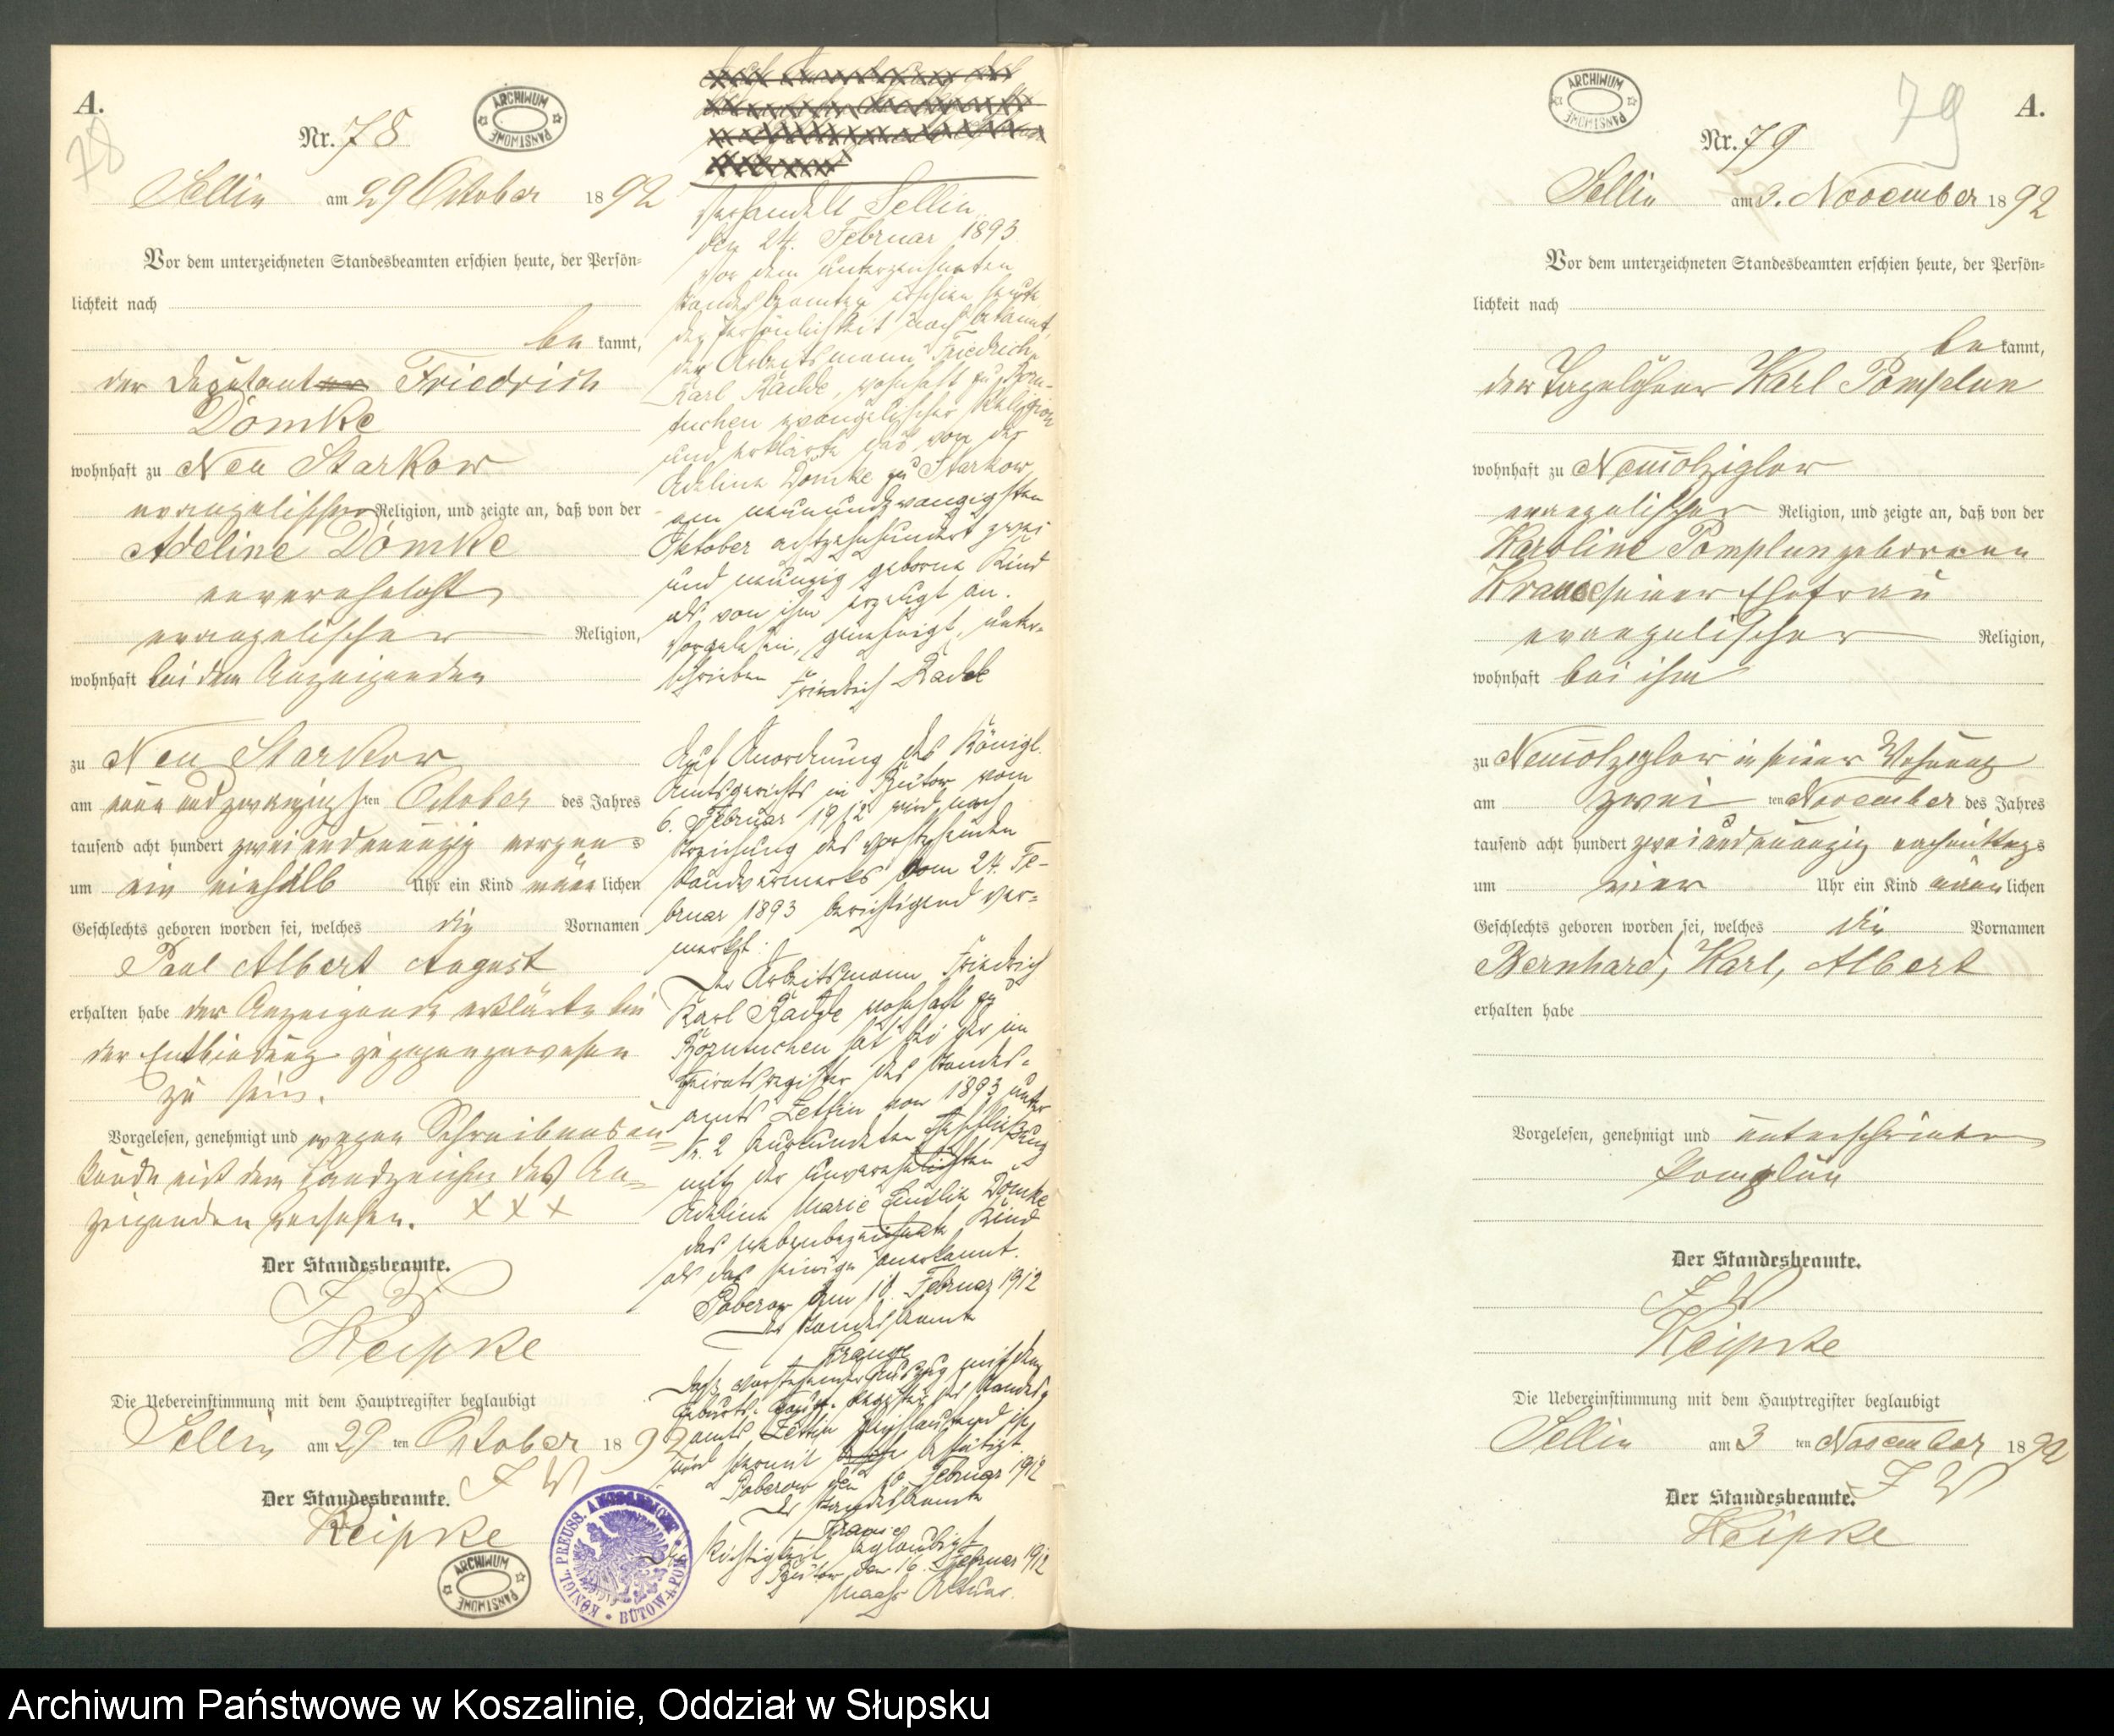 A.
78
Nr. 78
ARCHIWUM PAŃSTWOWE
Sellin am 29 October 1892
Vor dem unterzeichneten Standesbeamten erschien heute, der Persön=
lichkeit nach
be kannt,
der Deputant Friedrich
Dömke
wohnhaft zu Neu Starkow
evangelischer Religion, und zeigte an, daß von der
Adeline Dömke
unverehelicht
evangelischer Religion,
wohnhaft bei dem Anzeigenden
zu Neu Starkow
am neun und zwanzigsten October des Jahres
tausend acht hundert zwei und neunzig morgens
um ein einhalb Uhr ein Kind männlichen
Geschlechts geboren worden sei, welches die Vornamen
Paul Albert August
erhalten habe der Anzeigende erklärte bei
der Entbindung zugegen gewesen
zu sein.
Vorgelesen, genehmigt und wegen Schreibensun=
kunde mit dem Handzeichen des An=
zeigenden versehen. x x x
Der Standesbeamte.
J. V.
Keipke
Die Uebereinstimmung mit dem Hauptregister beglaubigt
Sellin am 29 ten October 1892
J V
Der Standesbeamte.
Keipke
ARCHIWUM PAŃSTWOWE
KÖNIGL. PREUSS. AMTSGERICHT BÜTOW i. POM.
Verhandelt Sellin
den 24. Februar 1893
Vor dem unterzeichneten
Standesbeamten erschien heute
der Persönlichkeit nach bekannt,
der Arbeitsmann Friedrich
Karl Radde, wohnhaft zu Bom-
tuchen evangelischer Religion
und erklärte das von der
Adeline Dömke zu Starkow
am neunundzwanzigsten
Oktober achtzehnhundert zwei
und neunzig geborne Kind
als von ihm erzeugt an.
Vorgelesen, genehmigt, unter=
schrieben Friedrich Radde
Auf Anordnung des Königl.
Amtsgerichts in Bütow vom
6. Februar 1912 wird nach
Streichung des vorstehenden
Randvermerks vom 24. Fe-
bruar 1893 berichtigend ver=
merkt:
Der Arbeitsmann Friedrich
Karl Radde wohnhaft zu
hat bei der im
Heiratsregister des Standes=
amts Zettin von 1893 unter
Nr. 2 beurkundeten Eheschließung
mit der unverehelichten
Adeline Marie Emilie Dömke
das nebenbezeichnete Kind
als das seinige anerkannt.
Poberow am 10. Februar 1912
Der Standesbeamte
Daß vorstehender Auszug mit dem
Geburts- Haupt- Register des Standes
amts Zettin gleichlautend ist,
wird hiermit bestätigt.
Poberow den 10. Februar 1912
Der Standesbeamte
Die Richtigkeit beglaubigt
Bütow, den 16. Februar 1912
Aktuar.
ARCHIWUM PAŃSTWOWE
79
A.
Nr. 79
Sellin am 3. November 1892
Vor dem unterzeichneten Standesbeamten erschien heute, der Persön=
lichkeit nach
be kannt,
der Tagelöhner Karl Pomplun
wohnhaft zu Neuolziglow
evangelischer Religion, und zeigte an, daß von der
Karoline Pomplun geborenen
Krause seiner Ehefrau
evangelischer Religion,
wohnhaft bei ihm
zu Neuolziglow in seiner Wohnung
am zwei ten November des Jahres
tausend acht hundert zwei und neunzig nachmittags
um vier Uhr ein Kind männlichen
Geschlechts geboren worden sei, welches die Vornamen
Bernhard, Karl, Albert
erhalten habe
Vorgelesen, genehmigt und unterschrieben
Pomplun
Der Standesbeamte.
J V
Keipke
Die Uebereinstimmung mit dem Hauptregister beglaubigt
Sellin am 3 ten November 1892
J V
Der Standesbeamte.
Keipke
Archiwum Państwowe w Koszalinie, Oddział w Słupsku